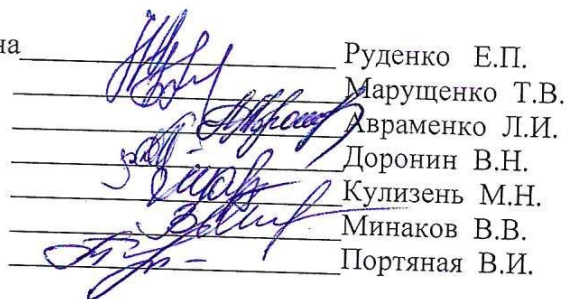 на Руденко Е.П.
Марущенко Т.В.
Авраменко Л.И.
Доронин В.Н.
Кулизень М.Н.
Минаков В.В.
Портяная В.И.